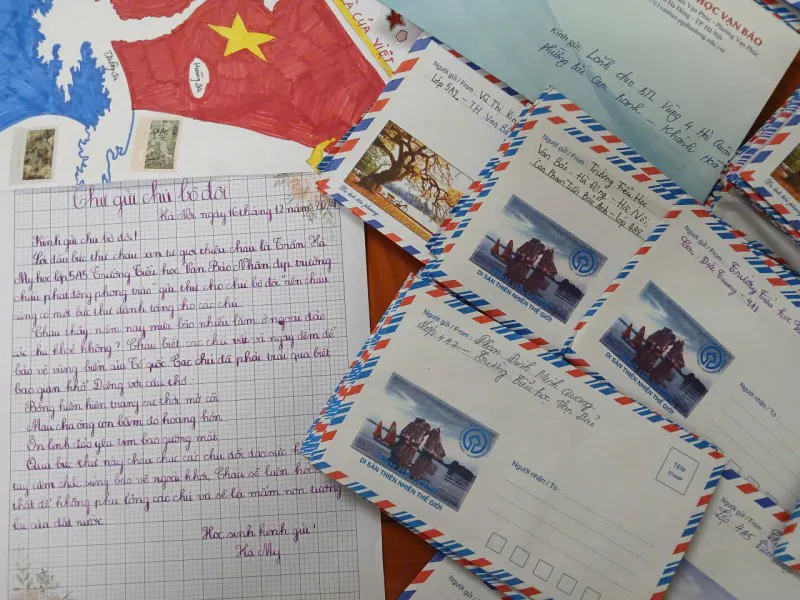 CỦA VIỆT
Hoàng Sa
HỌC VẠN BẢO
Kính gửi: Lãnh đạo BTL Vùng 4 Hải Quân
phường Bắc Cam Ranh - Khánh Hoà
Thư gửi chú bộ đội
Hà Nội ngày 16 tháng 12 năm
Kính gửi chú bộ đội!
Lá đầu bức thư cháu xin tự giới thiệu cháu là Trần Hà
My học lớp 5A5 Trường Tiểu học Vạn Bảo. Nhân dịp trường
cháu phát động phong trào "gửi thư cho chú bộ đội" nên cháu
cũng có một bức thư dành tặng cho các chú.
Cháu thấy năm nay mưa bão nhiều lắm ở ngoài đảo
các chú khoẻ không? Cháu biết các chú vất vả ngày đêm để
bảo vệ vùng biển của Tổ quốc. Các chú đã phải trải qua biết
bao gian khổ. Đúng với câu thơ:
Bỗng hiện hiện trang sử thời mở cõi
Máu cha ông còn bầm đỏ hoàng hôn
Ôi lính đảo yêu em bao gương mặt
Qua bức thư này cháu chúc các chú dồi dào sức
tay cầm chắc súng bảo vệ ngoài khơi. Cháu sẽ luôn
thật để không phụ lòng các chú và sẽ là mầm non tương
lai của đất nước.
Học sinh kính gửi!
Hà My
Người gửi / From: Vũ Thị Kim
Lớp 5A2 - TH Vạn Bảo
Người gửi / From: Trường Tiểu Học
Vạn Bảo - Hà Đông - Hà Nội
Con Phạm Trần Bảo Anh - lớp 4A5
DI SẢN THIÊN NHIÊN THẾ GIỚI
Người gửi / From: Trường Tiểu học
Con Đức Trương - 4A5
DI SẢN THIÊN NHIÊN THẾ GIỚI
Người nhận / To:
Người gửi / From: Phan Đình Minh Quang
Lớp 4A7 - Trường Tiểu học Vạn Bảo
DI SẢN THIÊN NHIÊN THẾ GIỚI
Người nhận / To:
TEM
STAMP
Người gửi / From:
Lớp 4A5
Người gửi / From: